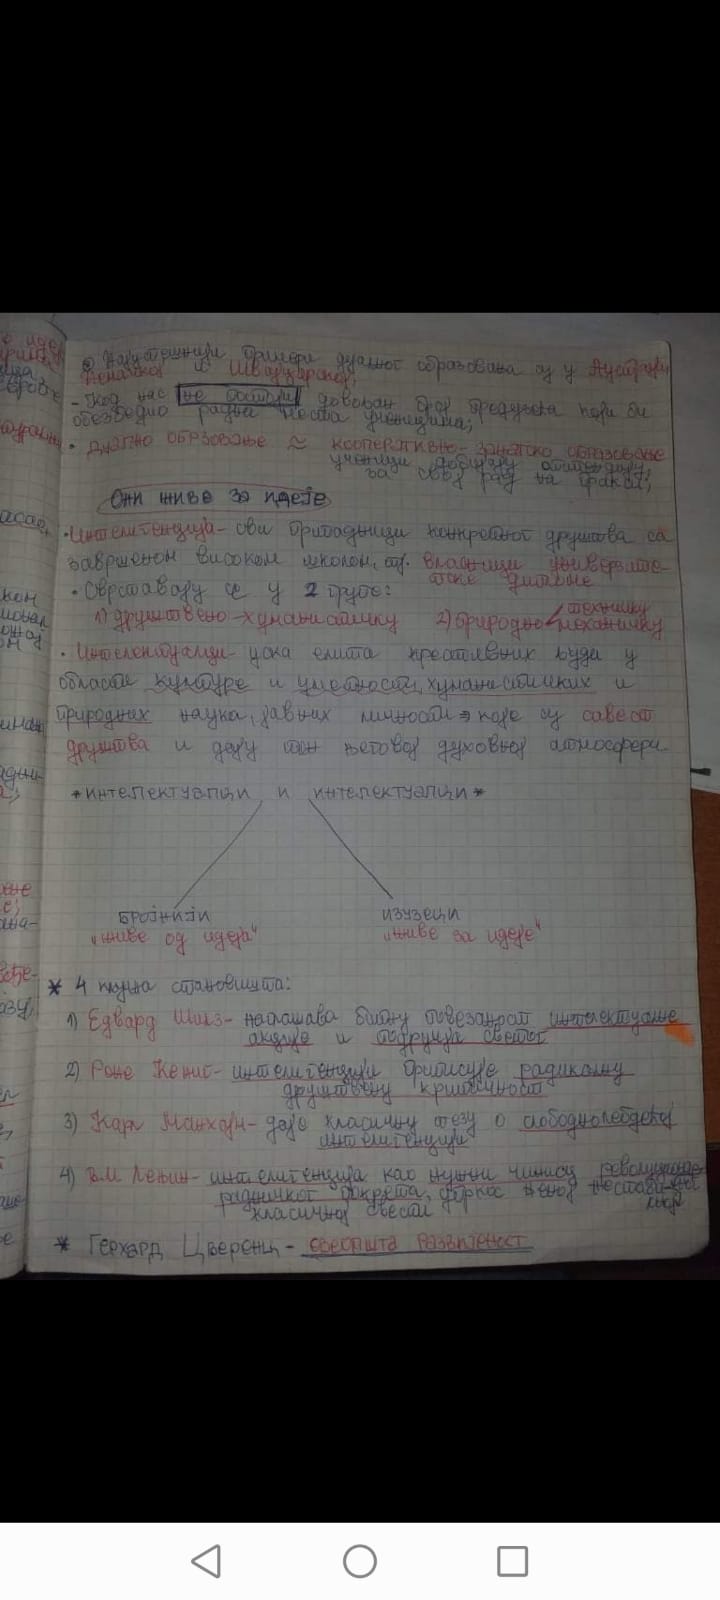 Најуспешнији примери дуалног образовања су у Аустрији
Немачкој и Швајцарској;
- Код нас не постоји довољан број предузећа који би
обезбедио радна места ученицима;
• ДУАЛНО ОБРЗОВАЊЕ ≈ КООПЕРАТИВНО - ЗАНАТСКО ОБРАЗОВАЊЕ
ученици добијају
за свој рад на пракси;
ОНИ ЖИВЕ ЗА ИДЕЈЕ
• Интелигенција - сви припадници конкретног друштва са
завршеном високом школом, тј. власници универзите-
тске дипломе
• Сврставају се у 2 групе:
1) друштвено-хуманистичку 2) природно
техничку
механичку
• Интелектуалци - уска елита креативних људи у
области културе и уметности, хуманистичких и
природних наука, јавних личности → које су савест
друштва и дају тон његовој духовној атмосфери.
* ИНТЕЛЕКТУАЛЦИ И ИНТЕЛЕКТУАЛЦИ *
БРОЈНИЈИ ИЗУЗЕЦИ
„живе од идеја“ „живе за идеје“
* 4 становишта:
1) Едвард Шилз - наглашава битну повезаност интелектуалне
и подручја светог
2) Рене Кениг - интелигенцији приписује радикалну
друштвену критичност
3) Карл Манхајм - даје класичну тезу о слободнолебдећој
интелигенцији
4) В.М Лењин - интелигенција као нужни чинилац
радничког покрета,
класичној свести
* Герхард Цверенц -